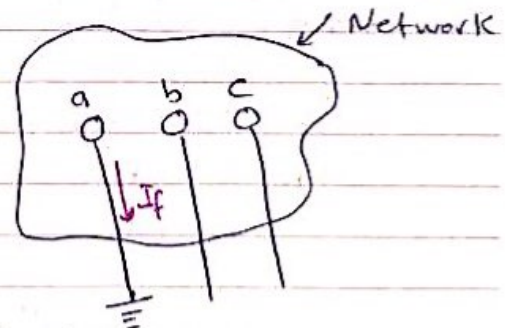 Network
a b c
If